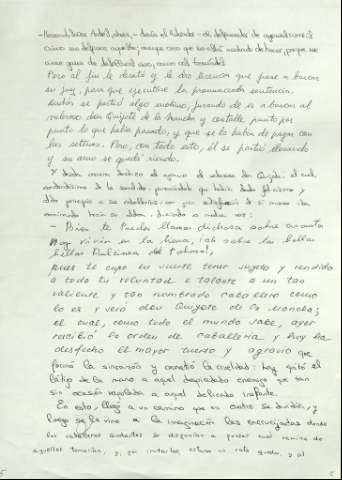 - Llamad, señor Andrés, ahora, - decía el labrador - al desfacedor de agravios; veréis
cómo no desface aquéste; aunque creo que no está acabado de hacer, porque me
viene gana de desollaros vivo, como vos temíades.
Pero al fin le desató y le dio licencia que fuese a buscar
su juez, para que ejecutase la pronunciada sentencia.
Andrés se partió algo mohíno, jurando de ir a buscar al
valeroso don Quijote de la Mancha y contalle punto por
punto lo que había pasado, y que se lo había de pagar con
las setenas. Pero, con todo esto, él se partió llorando
y su amo se quedó riendo.
Y desta manera deshizo el agravio el valeroso don Quijote; el cual,
contentísimo de lo sucedido, pareciéndole que había dado felicísimo y
alto principio a sus caballerías, con gran satisfacción de sí mismo iba
caminando hacia su aldea, diciendo a media voz:
- Bien te puedes llamar dichosa sobre cuantas
hoy viven en la tierra, ¡oh sobre las bellas
bella Dulcinea del Toboso!,
pues te cupo en suerte tener sujeto y rendido
a toda tu voluntad e talante a un tan
valiente y tan nombrado caballero como
lo es y será don Quijote de la Mancha;
el cual, como todo el mundo sabe, ayer
recibió la orden de caballería y hoy ha
desfecho el mayor tuerto y agravio que
formó la sinrazón y cometió la crueldad: hoy quitó el
látigo de la mano a aquel despiadado enemigo que tan
sin ocasión vapulaba a aquel delicado infante.
En esto, llegó a un camino que en cuatro se dividía, y
luego se le vino a la imaginación las encrucijadas donde
los caballeros andantes se ponían a pensar cuál camino de
aquellos tomarían, y, por imitarlos estuvo un rato quedo, y al